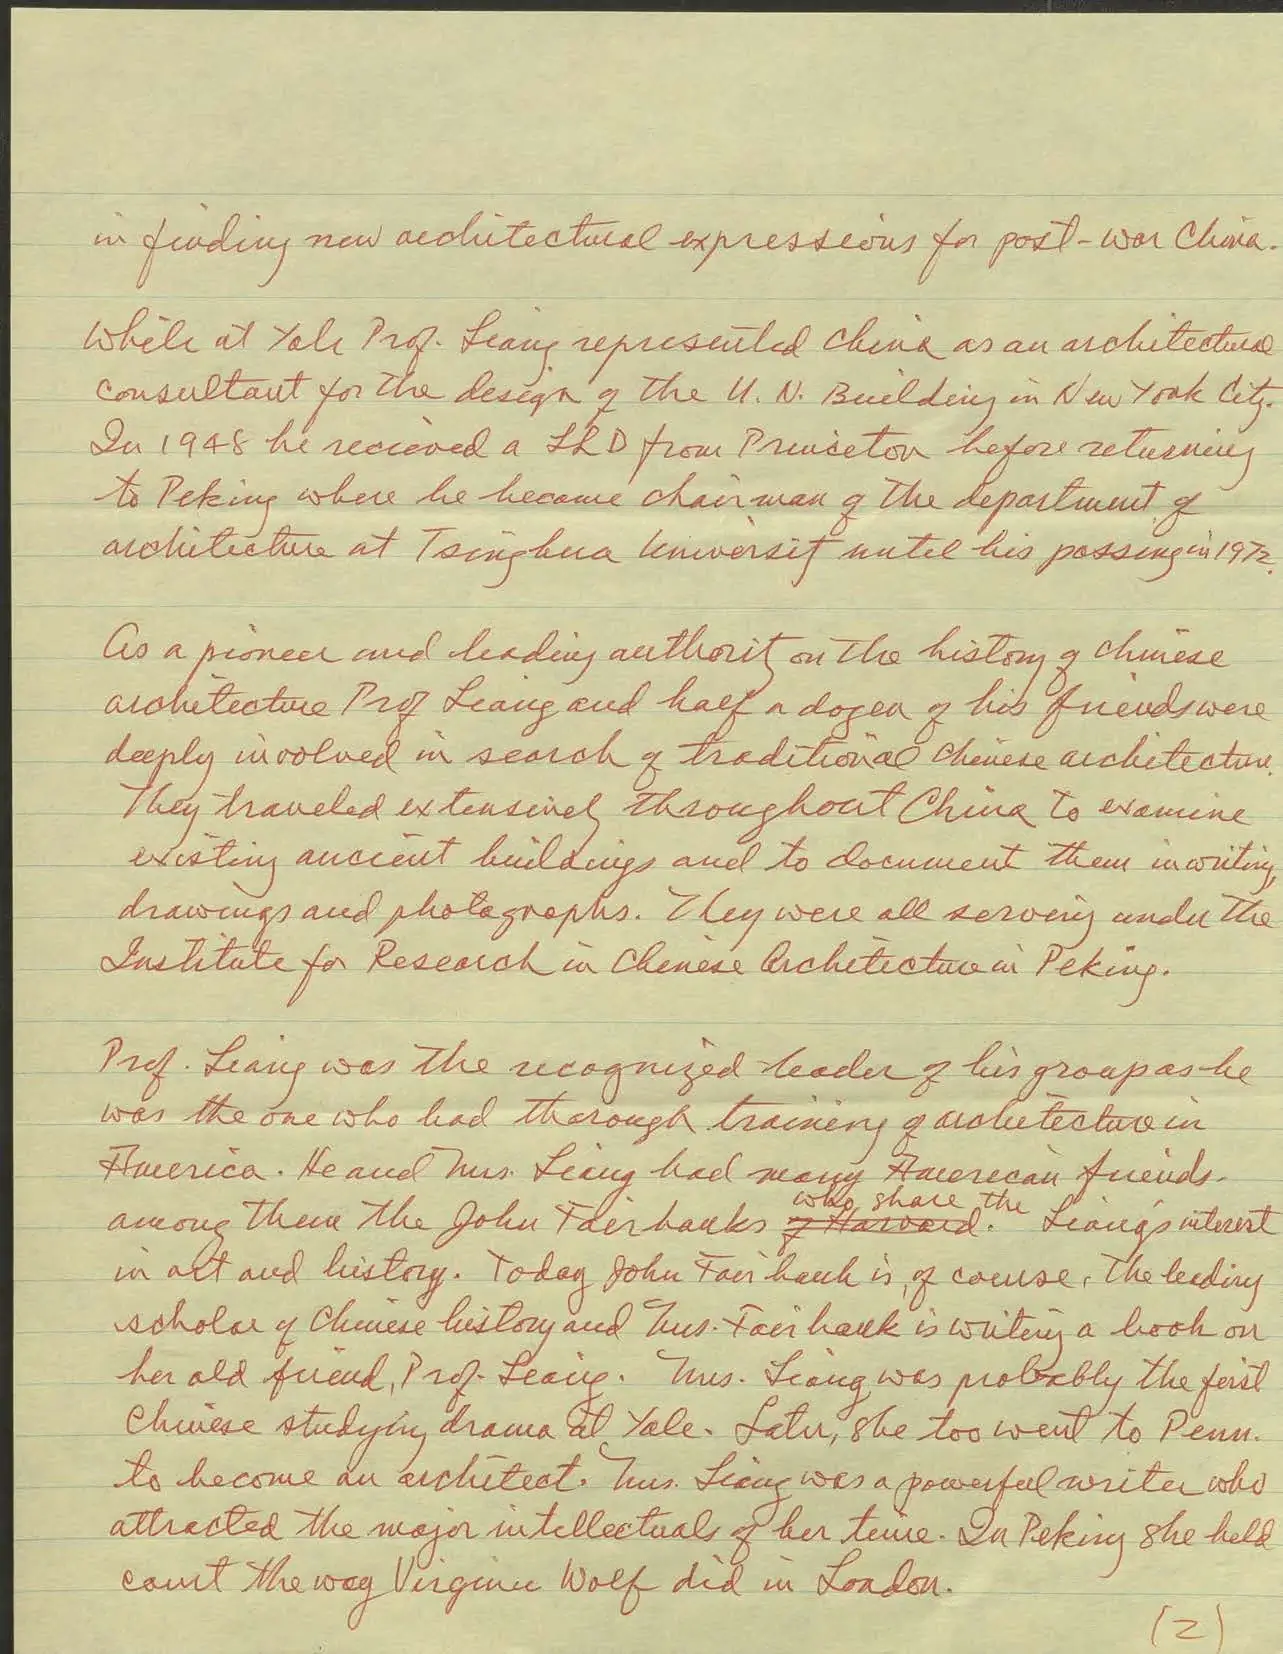 in finding new architectural expressions for post-war China.
While at Yale Prof. Liang represented China as an architectural
consultant for the design of the U. N. Building in New York City.
In 1948 he recieved a LLD from Princeton before returning
to Peking where he became chairman of the department of
architecture at Tsinghua University until his passing in 1972.
As a pioneer and leading authority on the history of Chinese
architecture Prof Liang and half a dozen of his friends were
deeply involved in search of traditional Chinese architecture.
They traveled extensively throughout China to examine
existing ancient buildings and to document them in writing,
drawings and photographs. They were all serving under the
Institute for Research in Chinese Architecture in Peking.
Prof. Liang was the recognized leader of his group as he
was the one who had thorough training of architecture in
America. He and Mrs. Liang had many American friends.
who share the
among them the John Fairbanks of Harvard. Liang's interest
in art and history. Today John Fairbank is, of course, the leading
scholar of Chinese history and Mrs. Fairbank is writing a book on
her old friend, Prof. Liang. Mrs. Liang was probably the first
Chinese studying drama at Yale. Later, she too went to Penn.
to become an architect. Mrs. Liang was a powerful writer who
attracted the major intellectuals of her time. In Peking she held
court the way Virginia Wolf did in London.
(2)